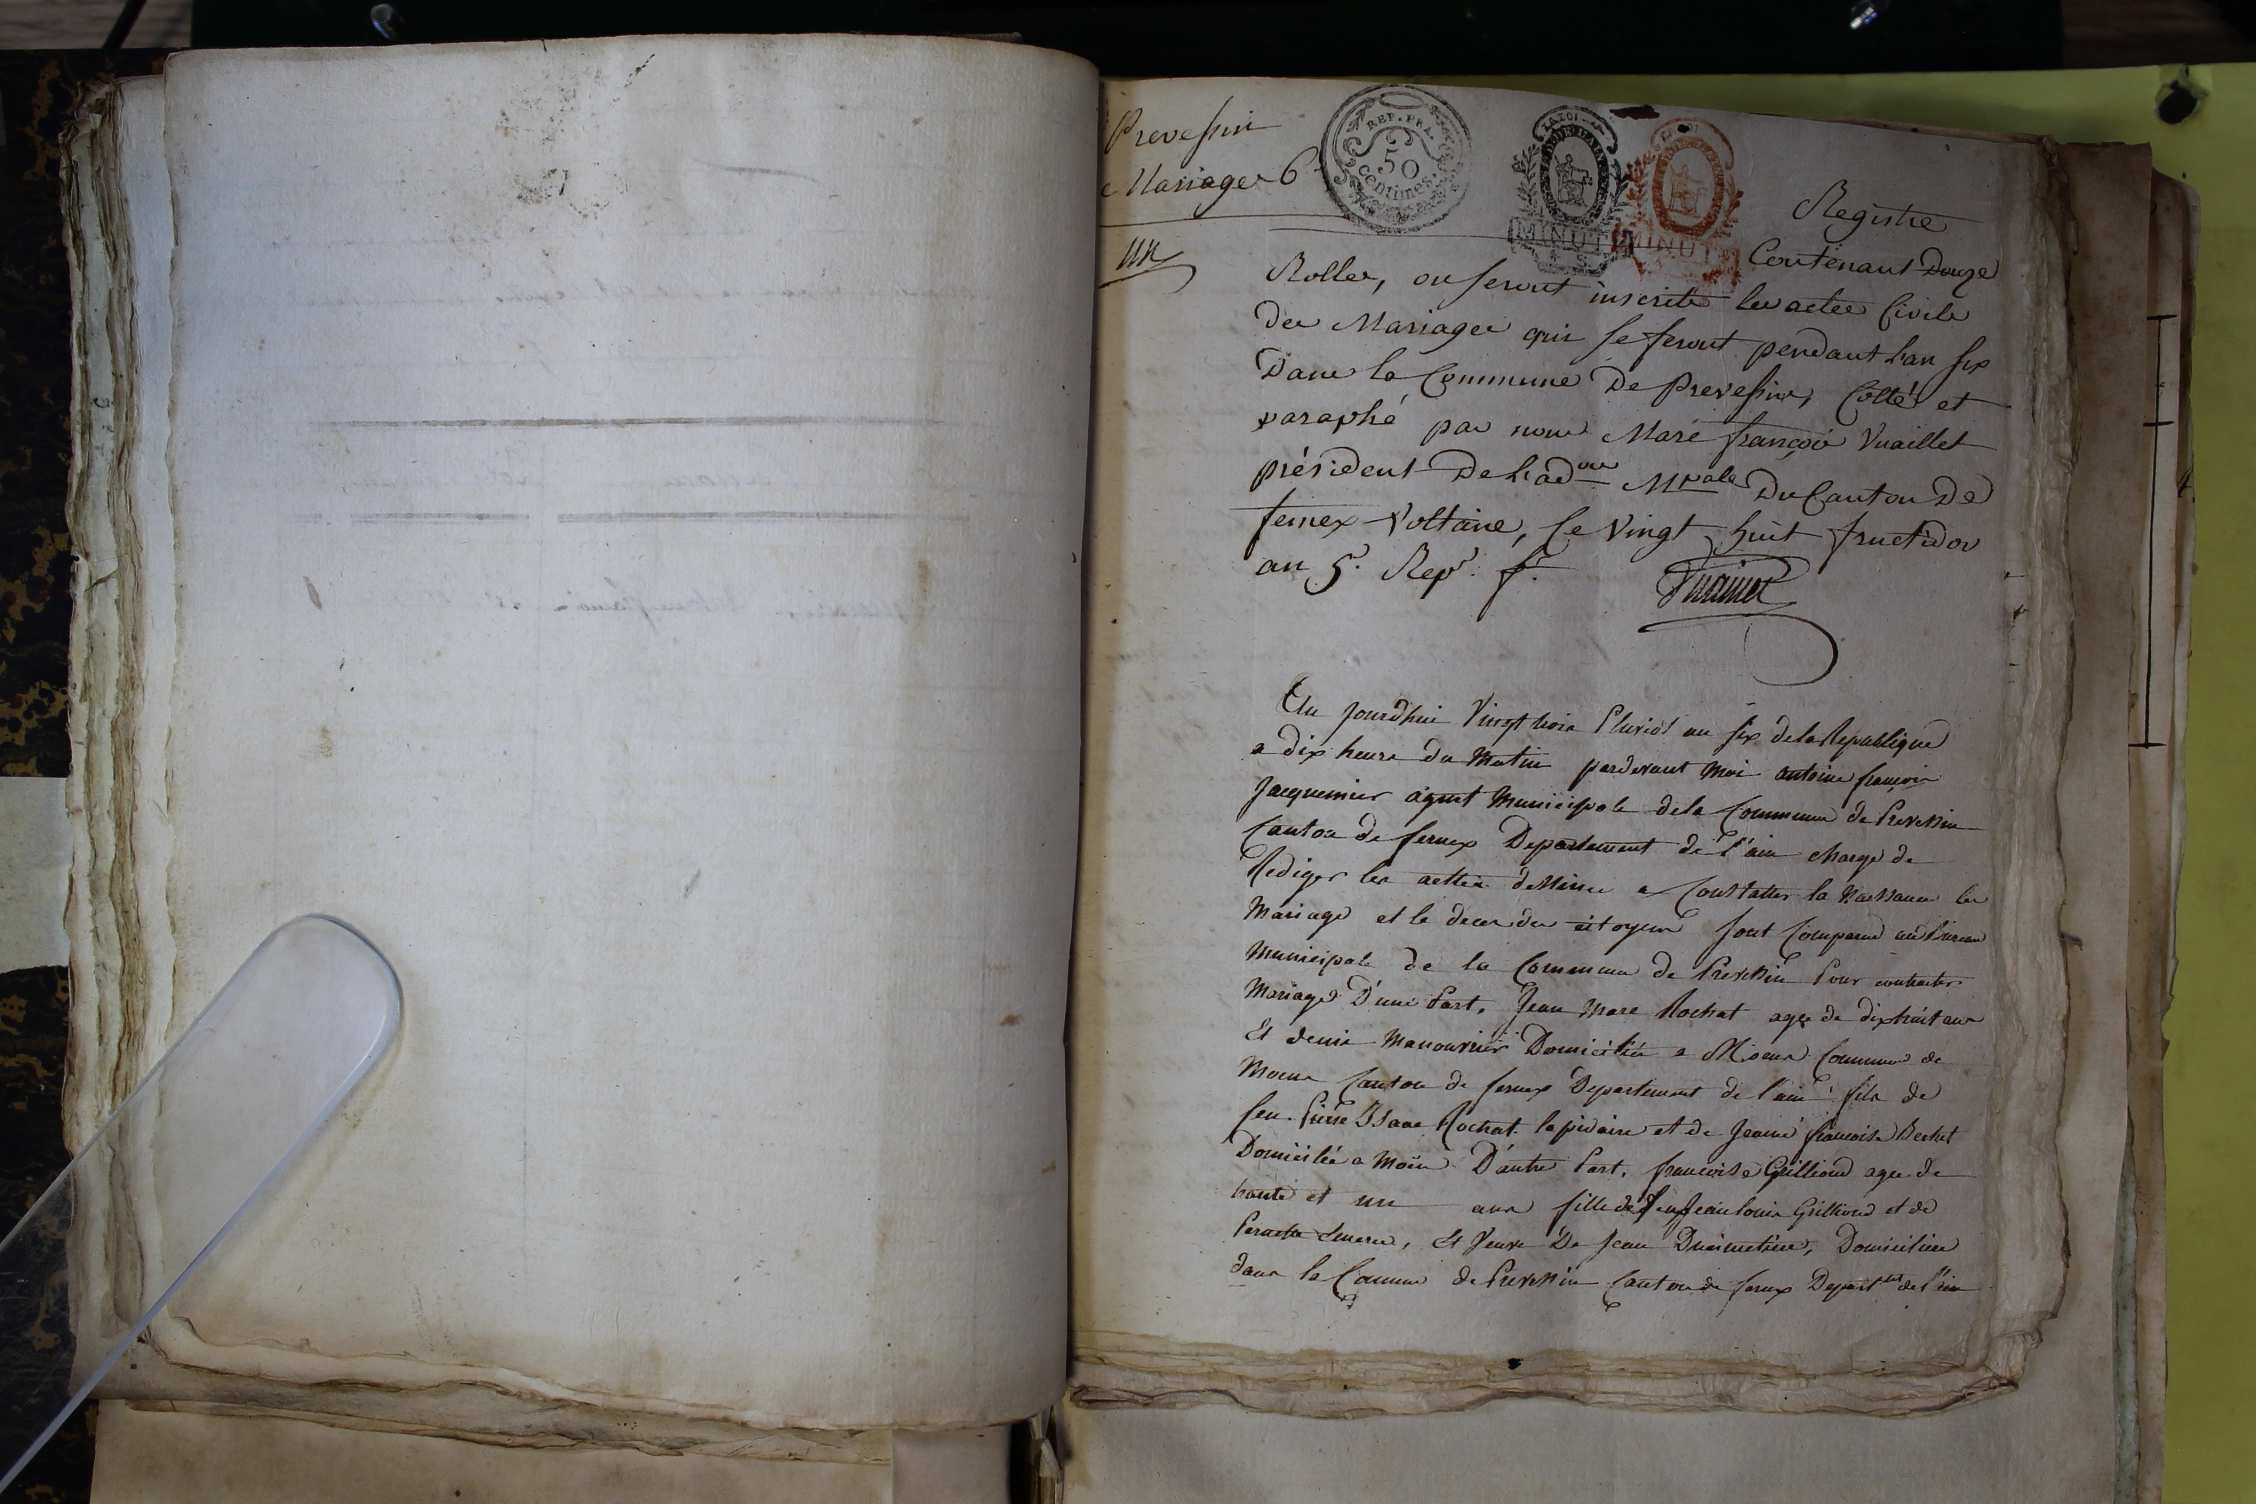 Prevessin
Mariages 6
REP. FRA.
50
centimes.
LA LOI
MINUTE
MINUTE
un
Registre
Contenant Douze
Rolles, ou seront inscrits les actes Civils
des Mariages qui se feront pendant l'an six
Dans la Commune De Prevessin, Cotté et
paraphé par nous Marc françois Vuaillet
président De L'ad.on M.pale Du Canton De
fernex Voltaire, le Vingt huit fructidor
an 5.e Rep.e f.e
Vuaillet
Au jourdhui Vingt trois Pluviôs an six de la Republique
a dix heure du Matin pardevant Moi antoine françois
Jacquemier agent Municipale dela Commune de Prevessin
Canton de fernex Departement de l'ain charge de
Rediger les acttes dessinee a Constatter la Naissance les
Mariage et le deces des citoyens sont Comparus au Bureau
Municipale de la Commune de Prevessin Pour contracter
Mariage D'une Part, Jean Marc Rochat agee de dixhuit ans
Et demis Manouvrier Domiciliée a Moens Commune de
Moens Canton de fernex Departement de l'ain fils de
feu Pierre Isaac Rochat lapidaire et de Jeanne françoise Bechet
Domiciliée a Moën D'autre Part, francoise Grilliond agee de
trante et un ans fille de feu Jean louis Grilliond et de
Pernette, Et Veuve De Jean, Domiciliee
dans la Commune de Prevessin Canton de fernex Depart.ent de l'ain